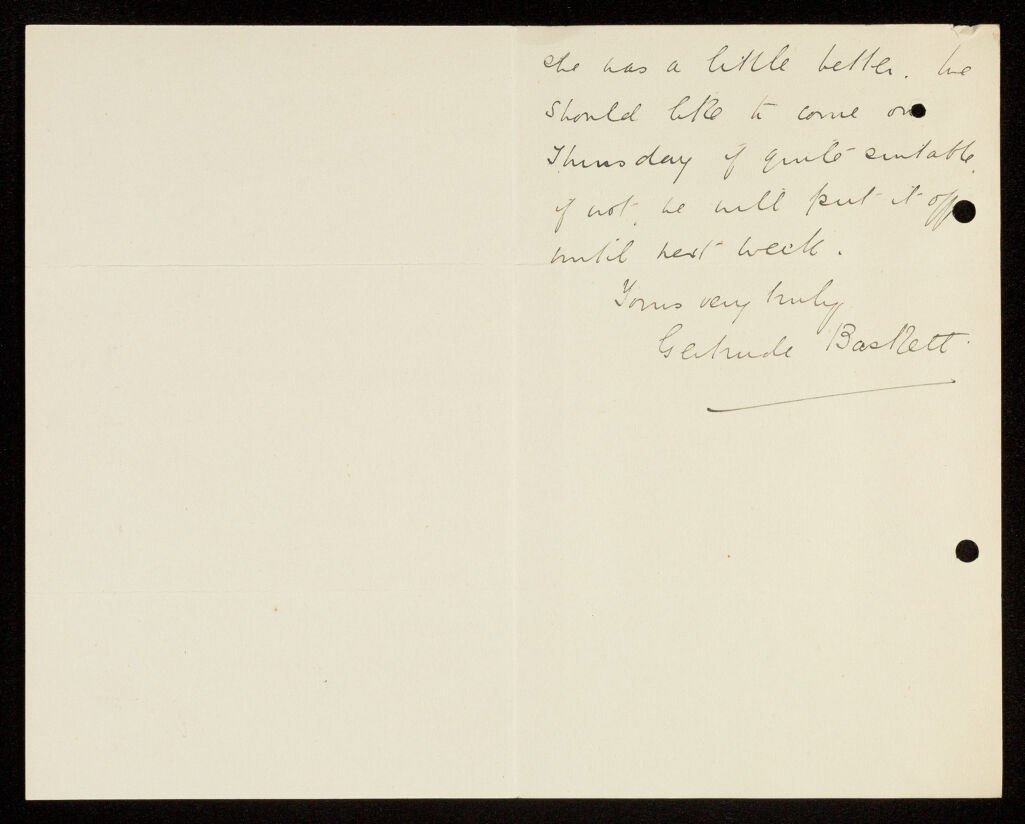 she was a little better. We
should like to come on
Thursday if quite suitable,
if not, we will put it off
until next week.
Yours very truly
Gertrude Baskett.